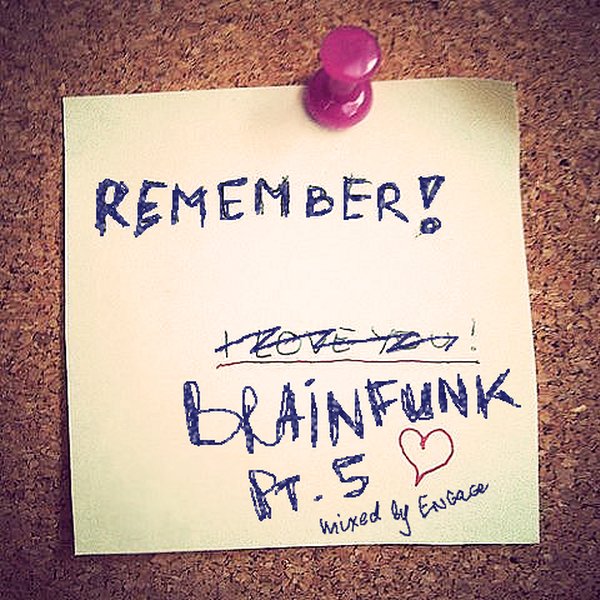 REMEMBER!
I LOVE YOU!
BRAINFUNK
PT. 5
mixed by ENGAGE